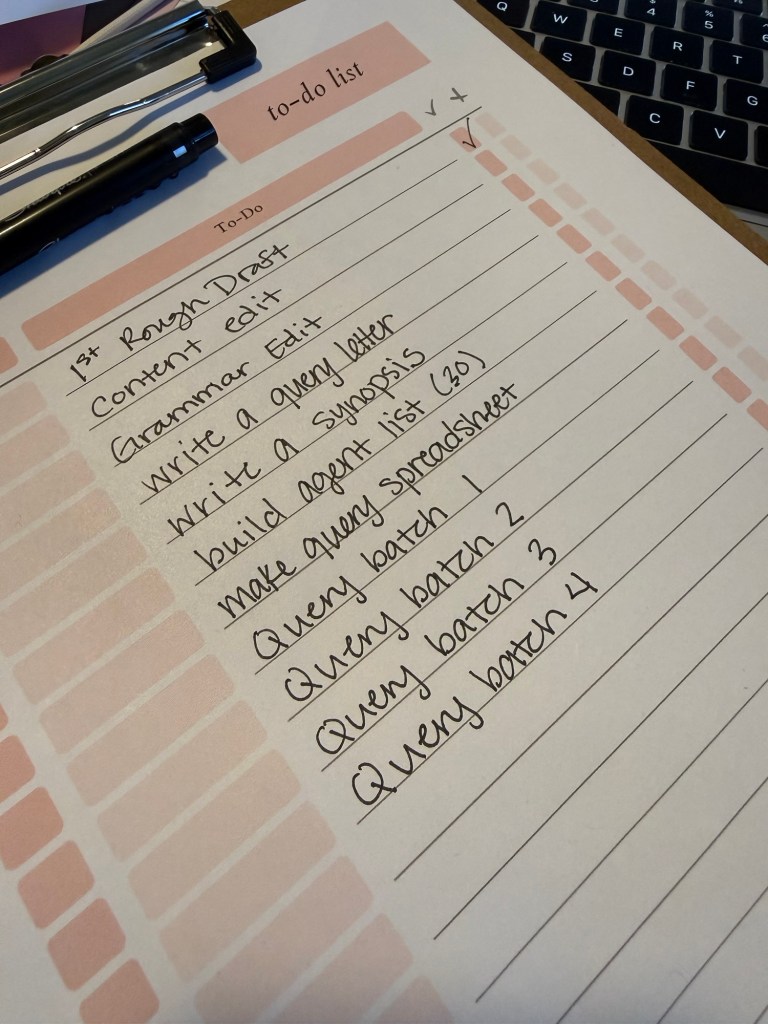 to-do list
To-Do
1st Rough Draft
Content edit
Grammar Edit
write a query letter
write a synopsis
build agent list (30)
make query spreadsheet
Query batch 1
Query batch 2
Query batch 3
Query batch 4
Q W E R T
4 5
S D F G
C V